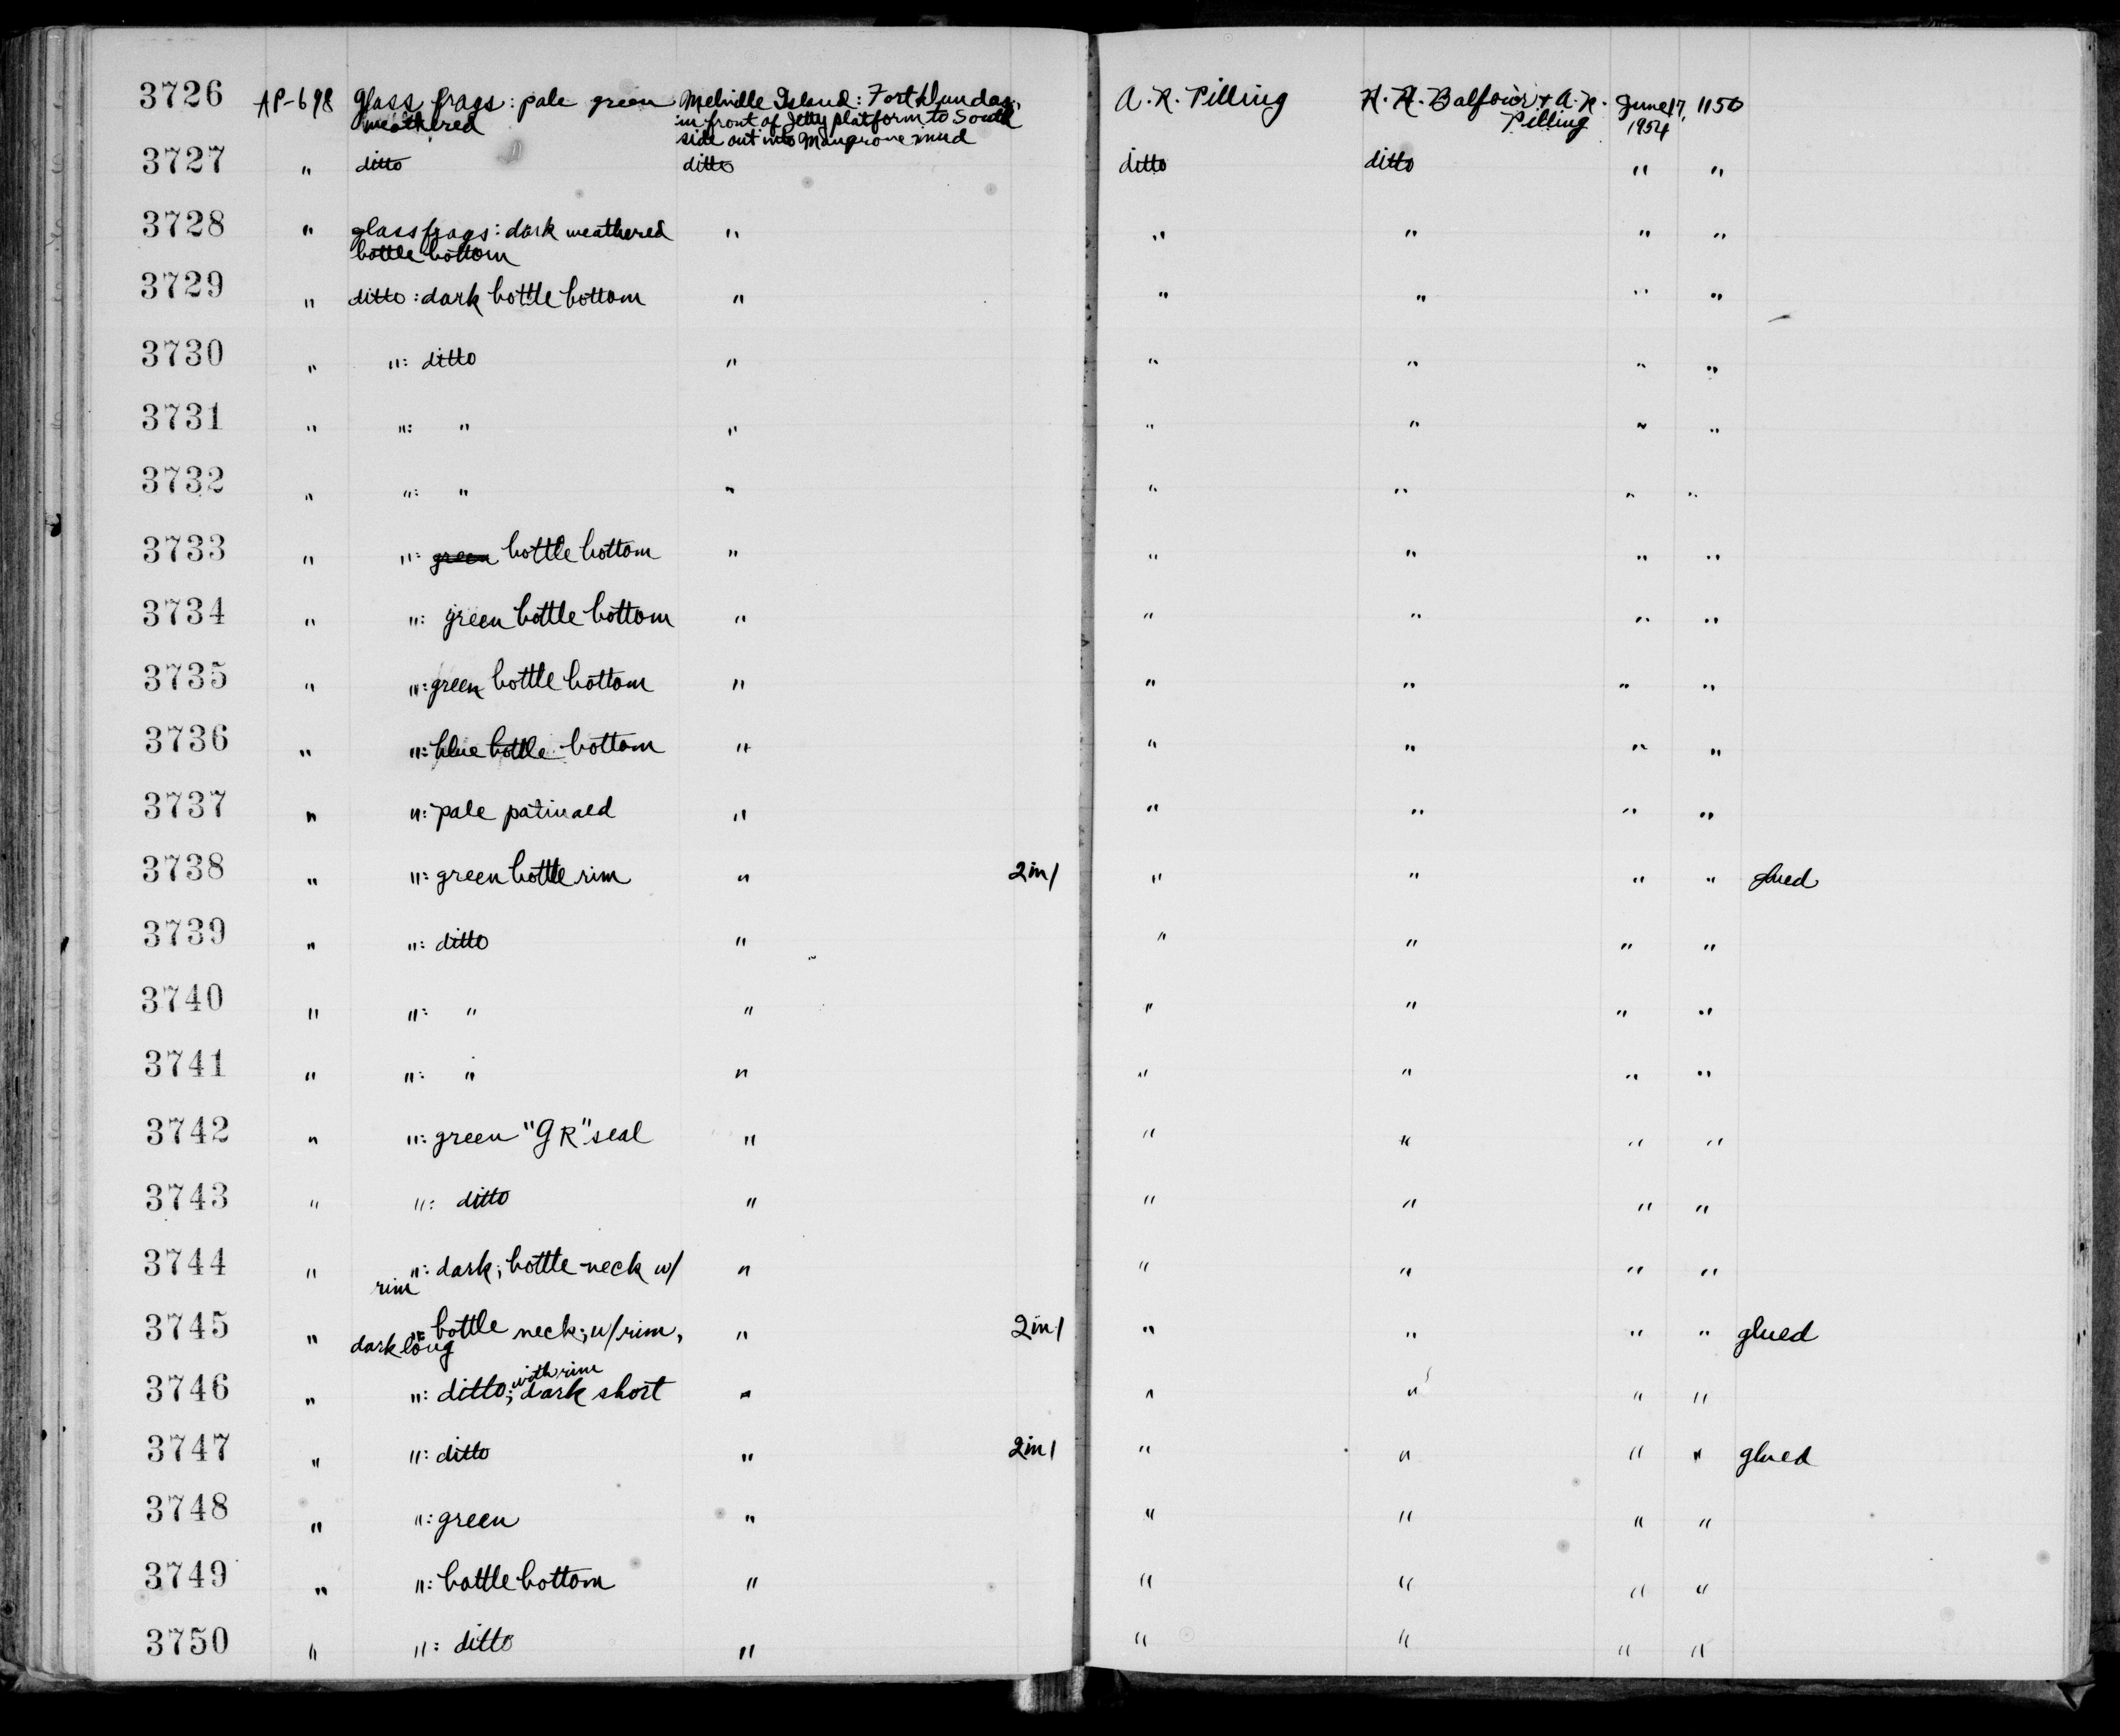 3726 AP-698 Glass frags: pale green Melville Island: Fort Dundas; A. R. Pilling H. R. Balfour & A. R. June 17, 1150
weathered in front of Jetty platform to South Pilling 1954
side out into Mangrove mud
3727 " ditto ditto ditto ditto " "
3728 " glass frags: dark weathered " " " " "
bottle bottom
3729 " ditto: dark bottle bottom " " " " "
3730 " ": ditto " " " " "
3731 " ": " " " " " "
3732 " ": " " " " " "
3733 " ": green bottle bottom " " " " "
3734 " ": green bottle bottom " " " " "
3735 " ": green bottle bottom " " " " "
3736 " ": blue bottle bottom " " " " "
3737 " ": pale patinaed " " " " "
3738 " ": green bottle rim " 2 in 1 " " " " glued
3739 " ": ditto " " " " "
3740 " ": " " " " " "
3741 " ": " " " " " "
3742 " ": green "GR" seal " " " " "
3743 " ": ditto " " " " "
3744 " ": dark; bottle neck w/ " " " " "
rim
3745 " ": bottle neck; w/rim, " 2 in 1 " " " " glued
dark long
with rim
3746 " ": ditto; dark short " " " " "
3747 " ": ditto " 2 in 1 " " " " glued
3748 " ": green " " " " "
3749 " ": bottle bottom " " " " "
3750 " ": ditto " " " " "